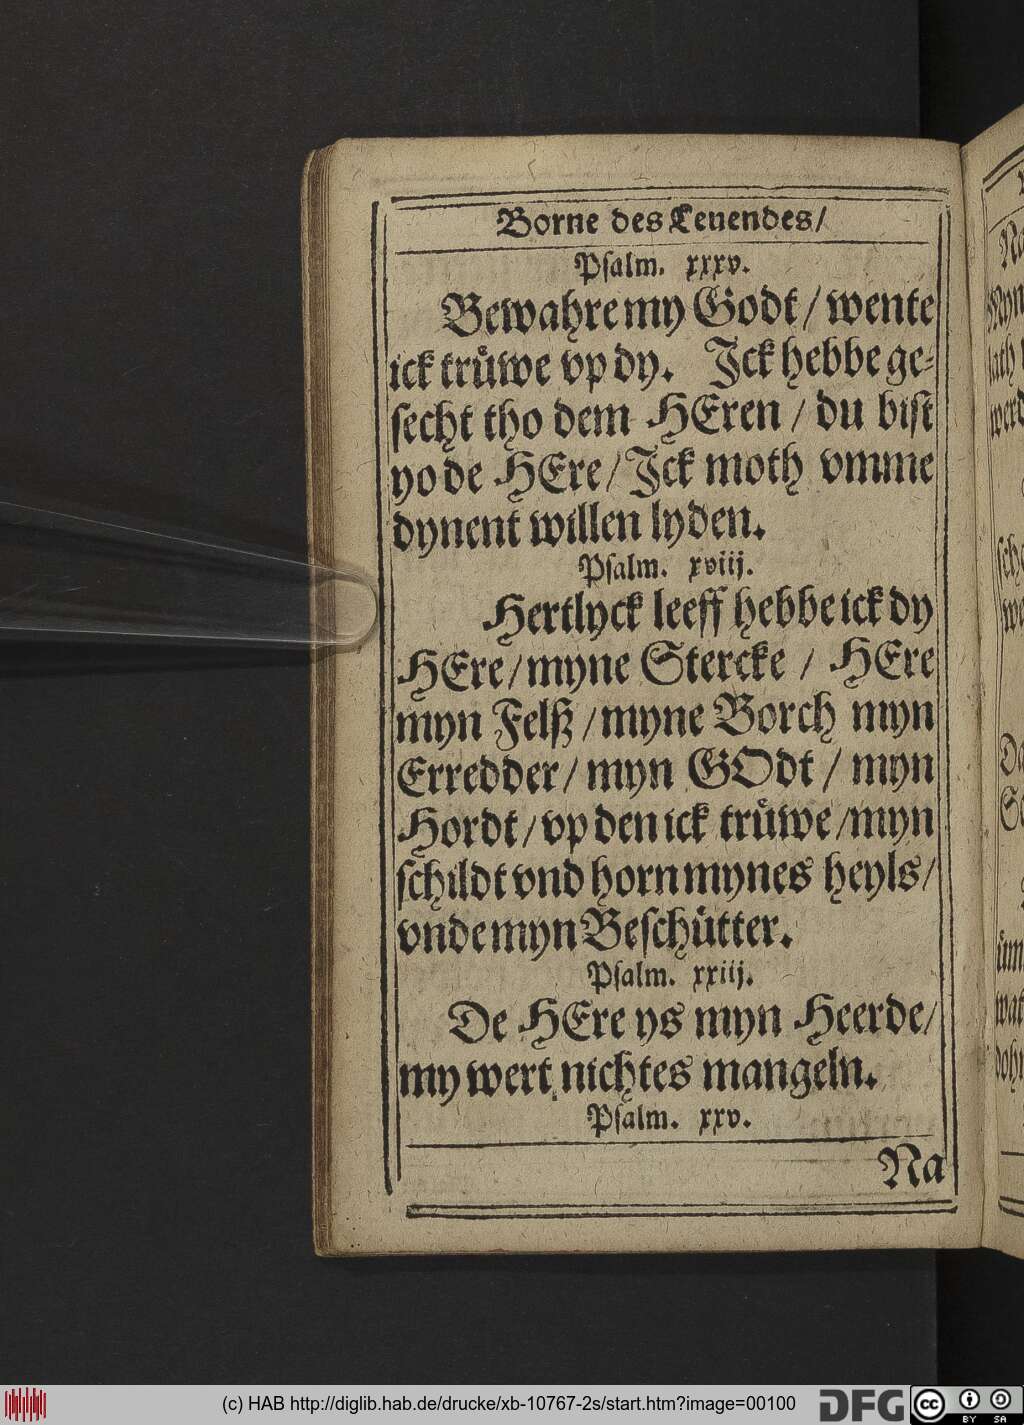 Borne des Leuendes/
Psalm. xxxv.
Bewahre my Godt / wente
ick trůwe vp dy. Jck hebbe ge-
secht tho dem HEren / du bist
yo de HEre / Jck moth vmme
dynent willen lyden.
Psalm. xviij.
Hertlyck leeff hebbe ick dy
HEre / myne Stercke / HEre
myn Felß / myne Borch myn
Erredder / myn GOdt / myn
Hordt / vp den ick trůwe / myn
schildt vnd horn mynes heyls /
vnde myn Beschütter.
Psalm. xxiij.
De HEre ys myn Heerde /
my wert nichtes mangeln.
Psalm. xxv.
Na
(c) HAB http://diglib.hab.de/drucke/xb-10767-2s/start.htm?image=00100
DFG
cc BY SA